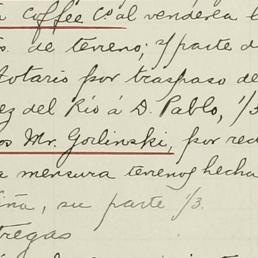 Coffee Co. al venderla
de terreno; y parte d
otario por traspaso de
ez del Río á D. Pablo, 1/3
os Mr. Gorlinski, por red
a mensura terrenos hecha
ña, su parte 1/3.
tregas